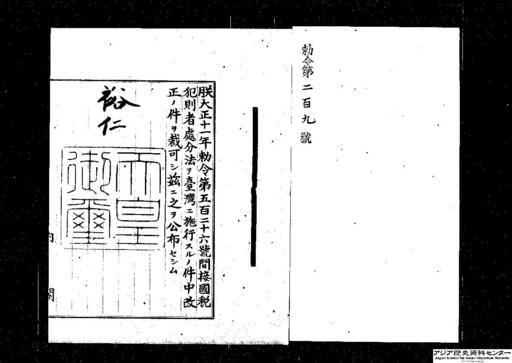 勅令第二百九號
朕大正十一年勅令第五百二十六號間接國税
犯則者處分法ヲ臺灣ニ施行スルノ件中改
正ノ件ヲ裁可シ茲ニ之ヲ公布セシム
裕仁
天皇
御璽
内閣
アジア歴史資料センター
Japan Center for Asian Historical Records